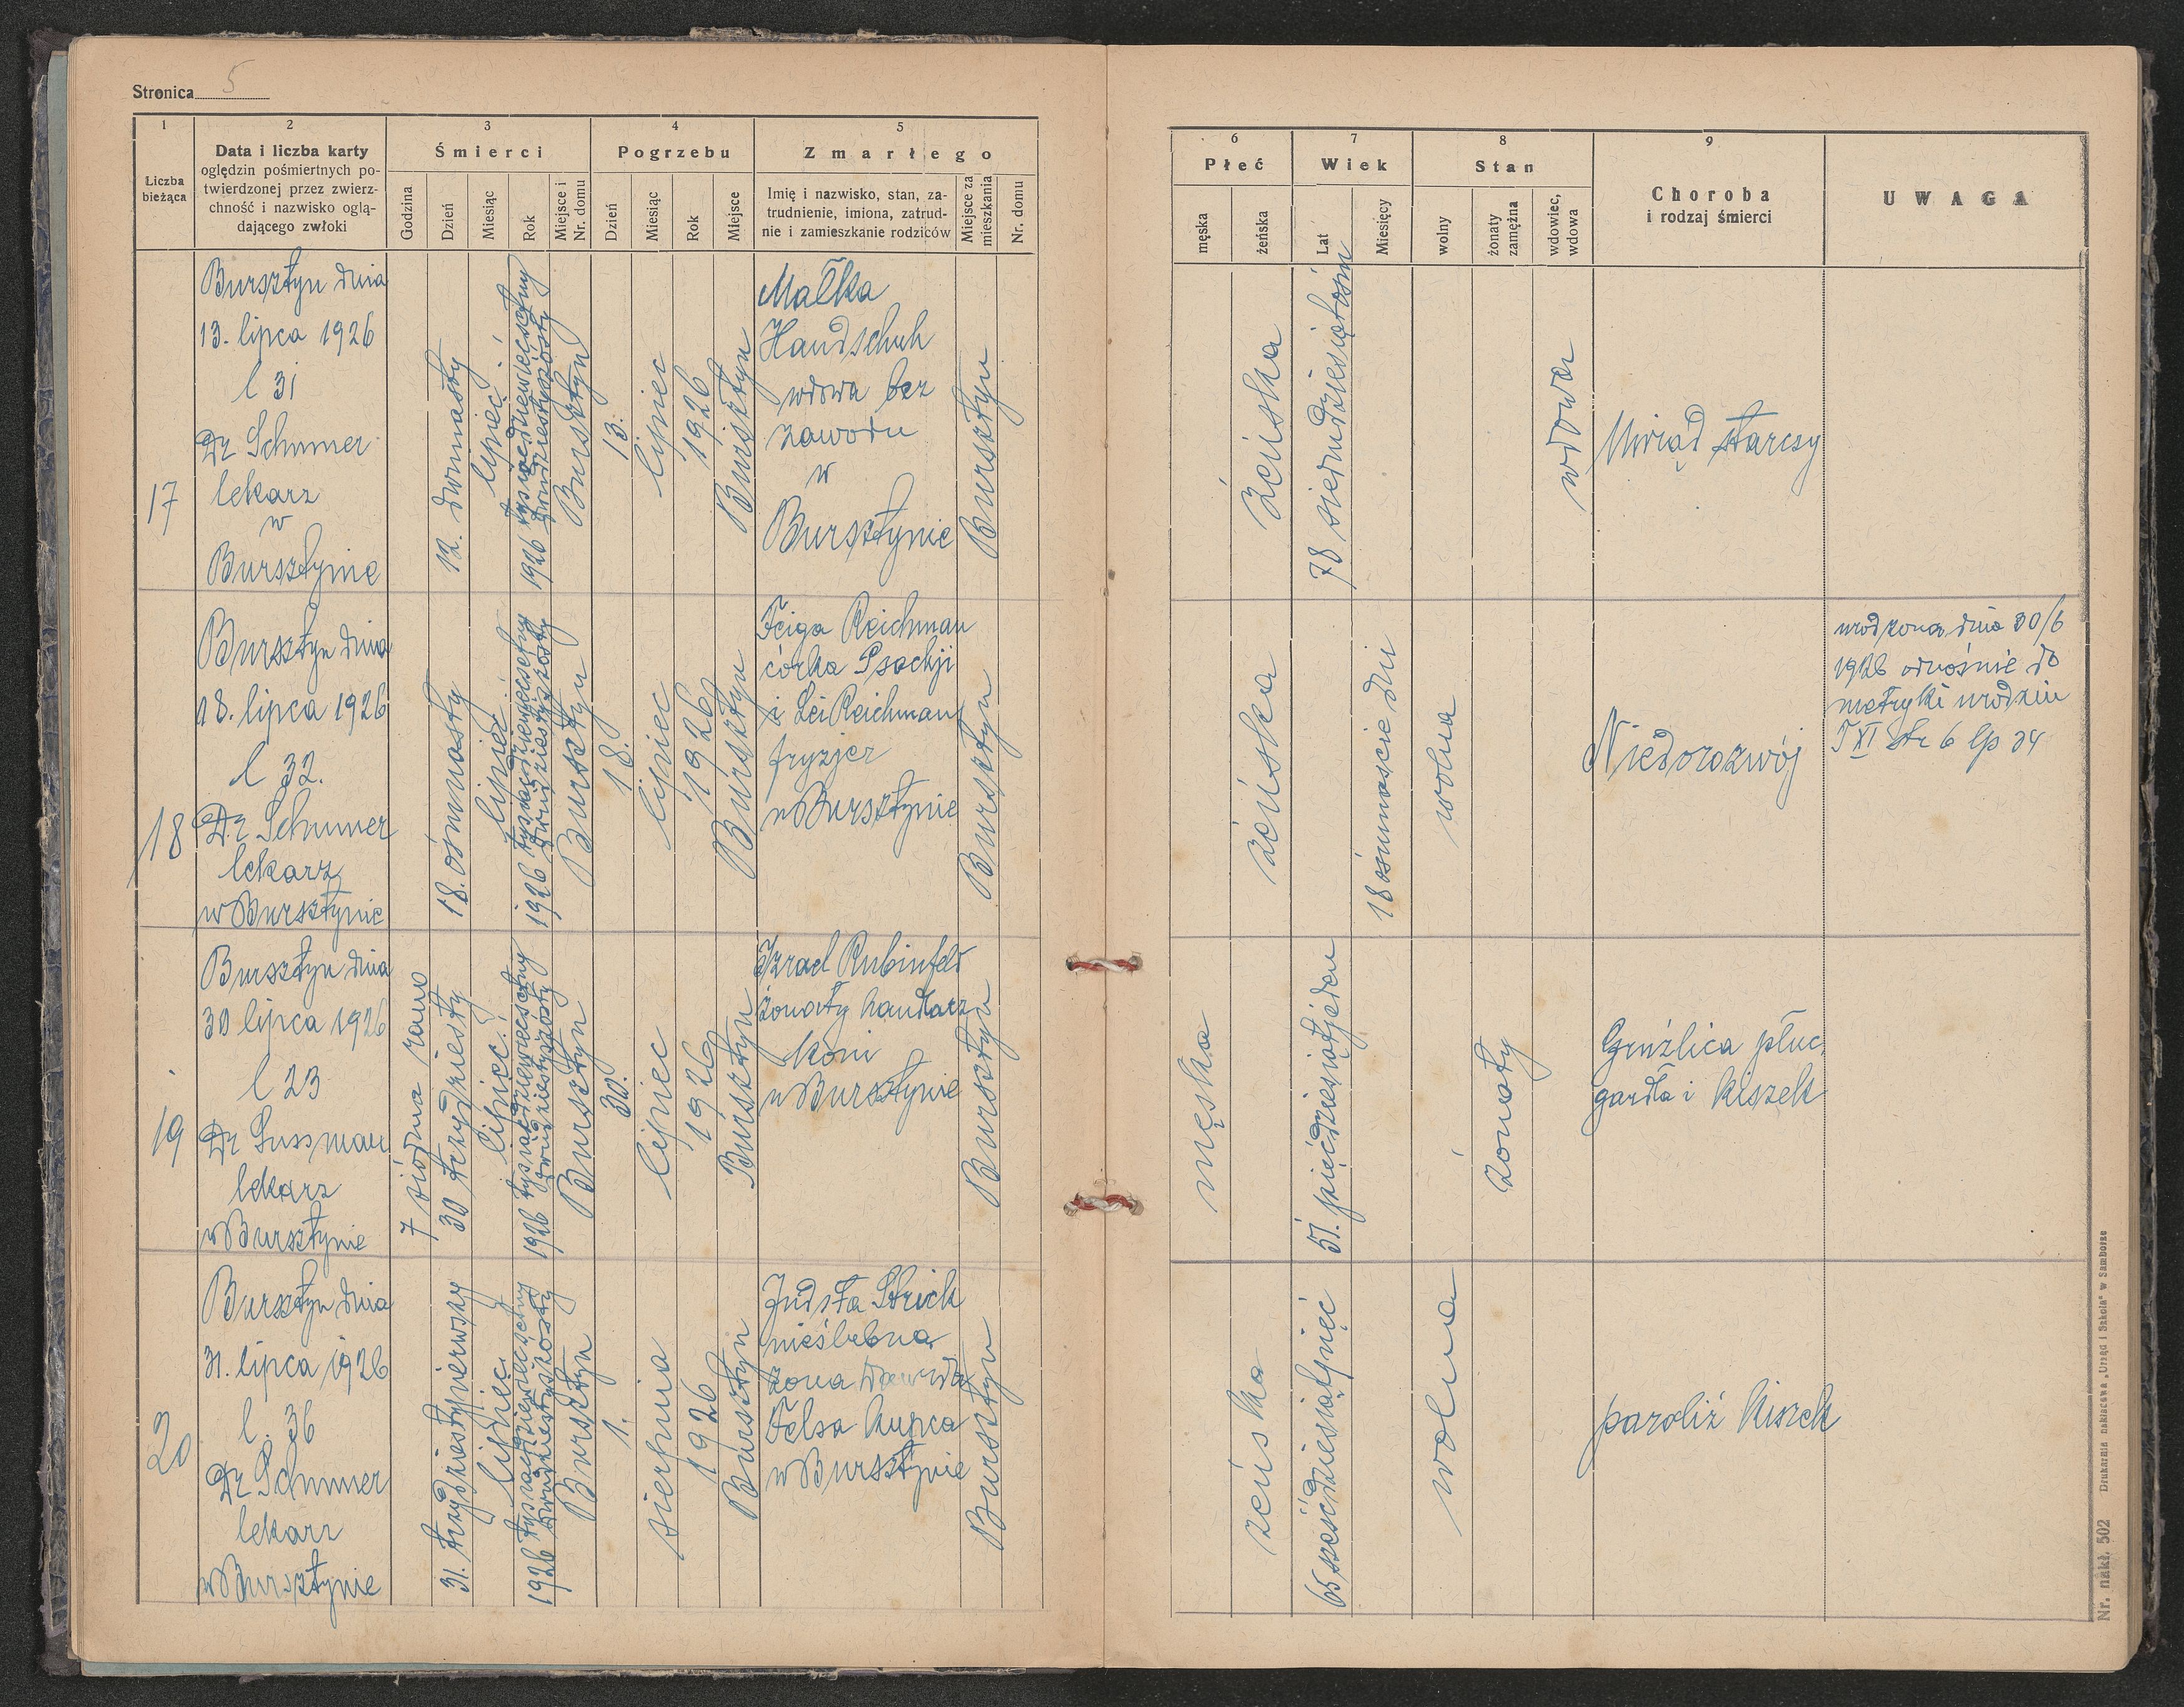 Stronica 5
1
2
3
4
5
Liczba bieżąca
Data i liczba karty
oględzin pośmiertnych po-
twierdzonej przez zwierz-
chność i nazwisko oglą-
dającego zwłoki
Śmierci
Godzina
Dzień
Miesiąc
Rok
Miejsce i Nr. domu
Pogrzebu
Dzień
Miesiąc
Rok
Miejsce
Zmarłego
Imię i nazwisko, stan, za-
trudnienie, imiona, zatrud-
nie i zamieszkanie rodziców
Miejsce za mieszkania
Nr. domu
6
7
8
9
Płeć
męska
żeńska
Wiek
Lat
Miesięcy
Stan
wolny
żonaty zamężna
wdowiec, wdowa
Choroba
i rodzaj śmierci
UWAGA
17
Bursztyn dnia
13. lipca 1926
l 31
Dr Schumer
lekarz
w
Bursztynie
12. dwunasty
lipiec
1926 tysiącdziewięćsetny
dwudziestyszósty
Bursztyn
13.
lipiec
1926
Bursztyn
Małka
Handschuh
wdowa bez
zawodu
w
Bursztynie
Bursztyn
żeńska
78 siedmdziesiątośm
wdowa
Uwiąd starczy
18
Bursztyn dnia
18. lipca 1926
l 32.
Dr. Schumer
lekarz
w Bursztynie
18. ósmnasty
lipiec
1926 tysiącdziewięćsetny
dwudziestyszósty
Bursztyn
18.
lipiec
1926
Bursztyn
Feiga Reichman
córka Psachji
i Lei Reichman
fryzjer
w Bursztynie
Bursztyn
żeńska
18 ośmnaście dni
wolna
Niedorozwój
urodzona dnia 30/6
1926 odnośnie do
metryki urodzin
T XI Str 6 lp 34
19
Bursztyn dnia
30 lipca 1926
l 23
Dr Sussman
lekarz
w Bursztynie
7 siódma rano
30 trzydziesty
lipiec
1926 tysiącdziewięćsetny
dwudziestyszósty
Bursztyn
30.
lipiec
1926
Bursztyn
Izrael Rubinfeld
żonaty handlarz
koni
w Bursztynie
Bursztyn
męska
51. pięćdziesiątjeden
żonaty
Gruźlica płuc,
gardła i kiszek
20
Bursztyn dnia
31. lipca 1926
l. 36
Dr Schumer
lekarz
w Bursztynie
31. trzydziestypierwszy
lipiec
1926 tysiącdziewięćsetny
dwudziestyszósty
Bursztyn
1.
sierpnia
1926
Bursztyn
Strich
nieślubna
żona Dawida
Felsa kupca
w Bursztynie
Bursztyn
żeńska
65 sześćdziesiątpięć
wolna
paraliż kiszek
Nr. nakł. 502 Drukarnia nakładowa „Urząd i Szkoła" w Samborze